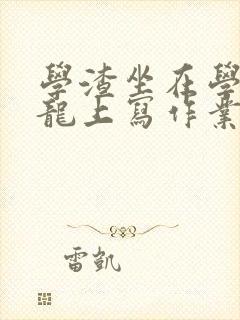 學渣坐在學
龍上寫作業
雷凱